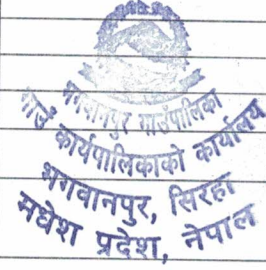 भगवानपुर गाउँपालिका
गाउँ कार्यपालिकाको कार्यालय
भगवानपुर, सिरहा
मधेश प्रदेश, नेपाल